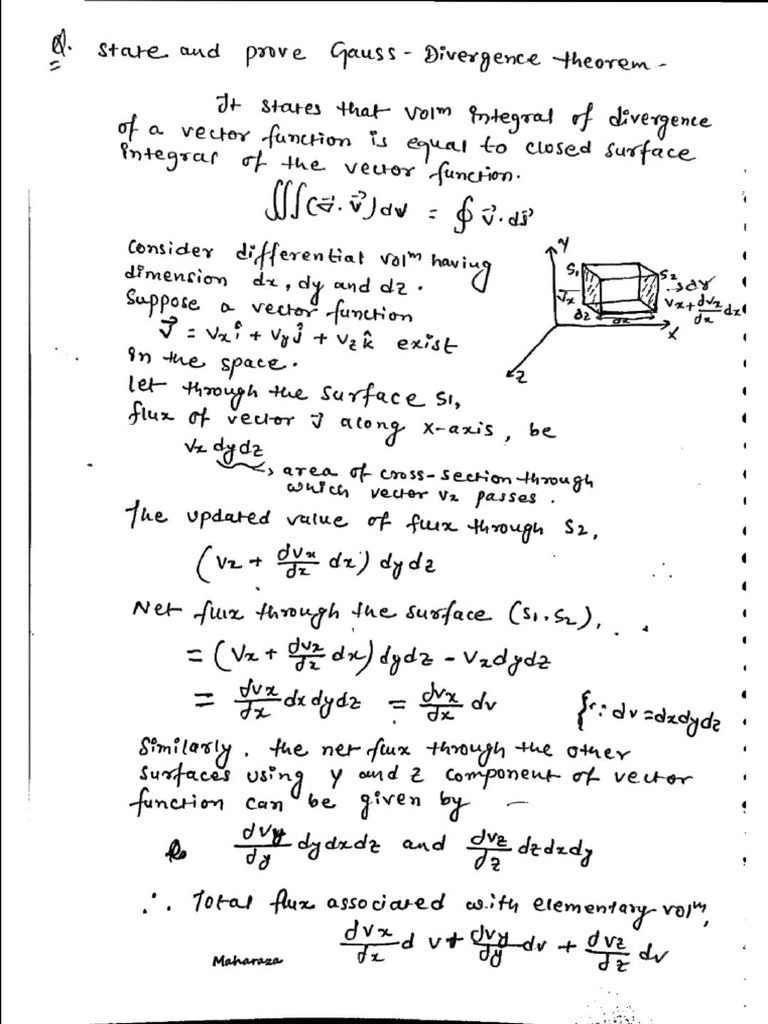 Q. State and prove Gauss-Divergence theorem-
It states that volm integral of divergence
of a vector function is equal to closed surface
integral of the vector function.
∭(∇⃗.V⃗)dv = ∮ V⃗.ds⃗
Consider differential volm having
dimension dx, dy and dz.
Suppose a vector function
V⃗ = Vxî + Vyĵ + Vzk̂ exist
in the space.
Y
S1
S2
Vx
dy
Vx+dVx/dx dx
dz
dx
X
Z
let through the surface S1,
flux of vector V along x-axis, be
Vx dydz
area of cross-section through
which vector Vx passes.
The updated value of flux through S2,
(Vx + dVx/dx dx) dydz
Net flux through the surface (S1.S2),
= (Vx + dVx/dx dx) dydz - Vxdydz
= dVx/dx dxdydz = dVx/dx dv {∵ dv=dxdydz
Similarly, the net flux through the other
surfaces using y and z component of vector
function can be given by -
dVy/dy dydxdz and dVz/dz dzdxdy
∴ Total flux associated with elementary volm,
dVx/dx dv + dVy/dy dv + dVz/dz dv
Maharaza